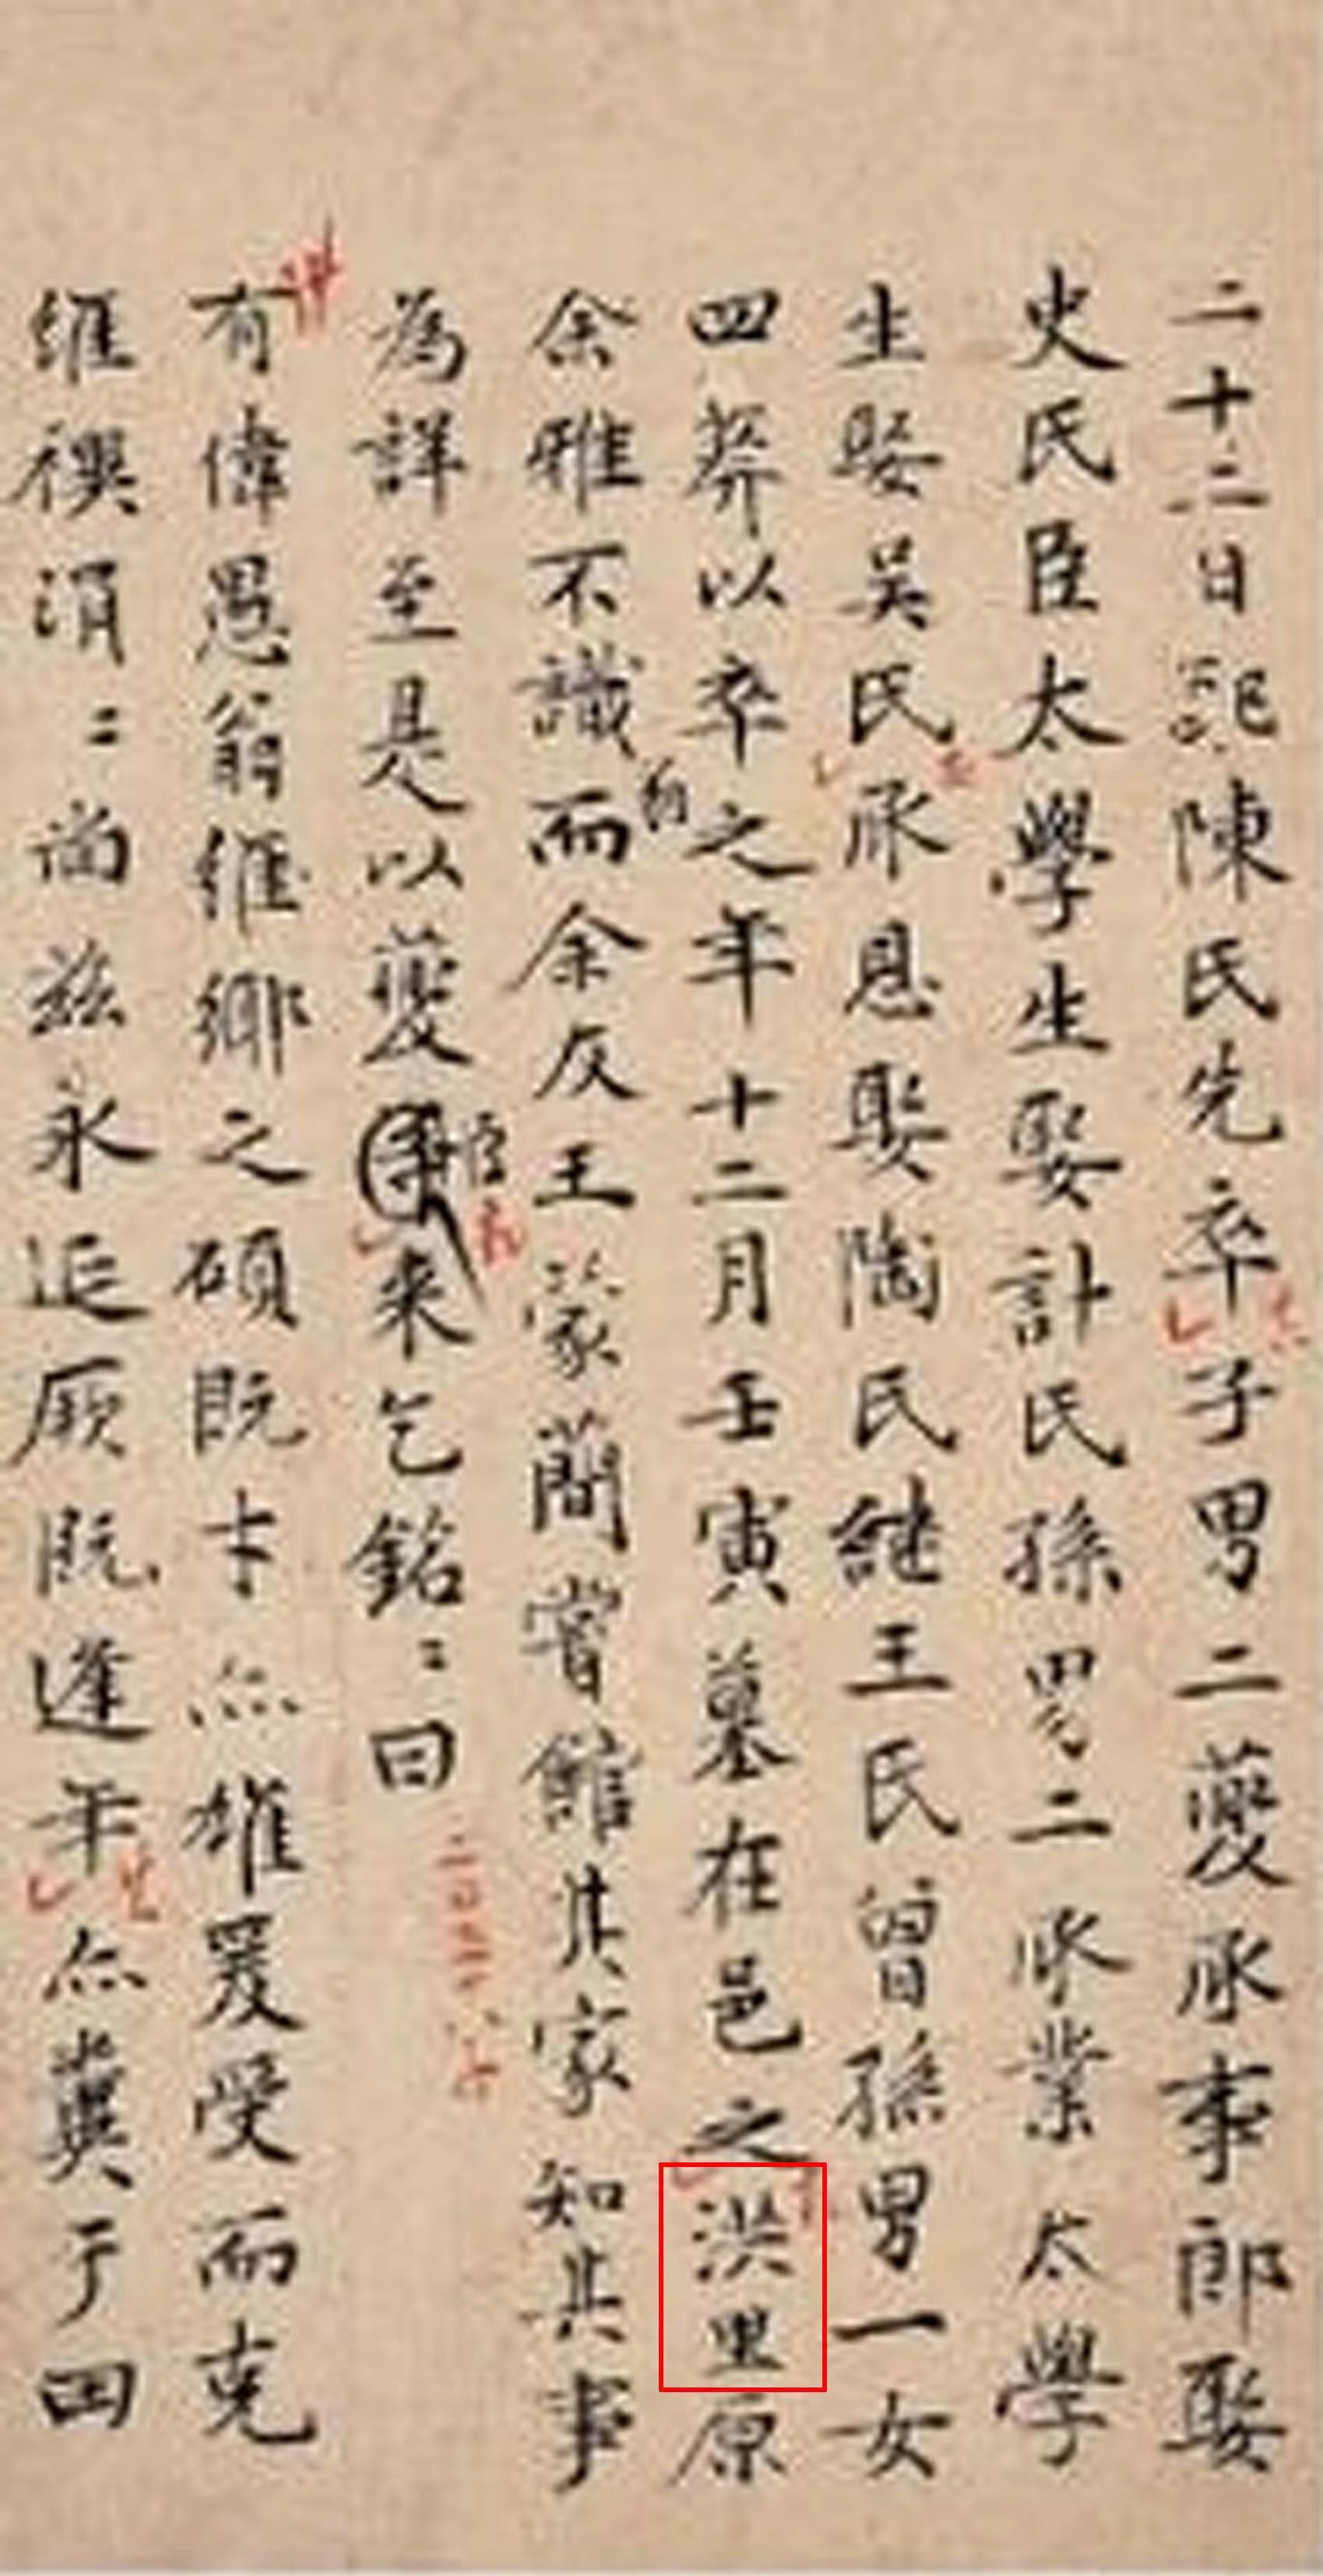 二十二日配陳氏先卒子男二夔承事郎娶
史氏臣太學生娶計氏孫男二承業太學
生娶吴氏承恩娶陶氏継王氏曾孫男一女
四葬以卒之年十二月壬寅墓在邑之洪里原
余雅不識而余友王蒙蕳嘗館其家知其事
為詳至是以夔来乞銘:曰
有偉愚翁維鄉之碩既才亦雄爰受而克
維禩涓:尚兹永延厥既逢年亦冀于田